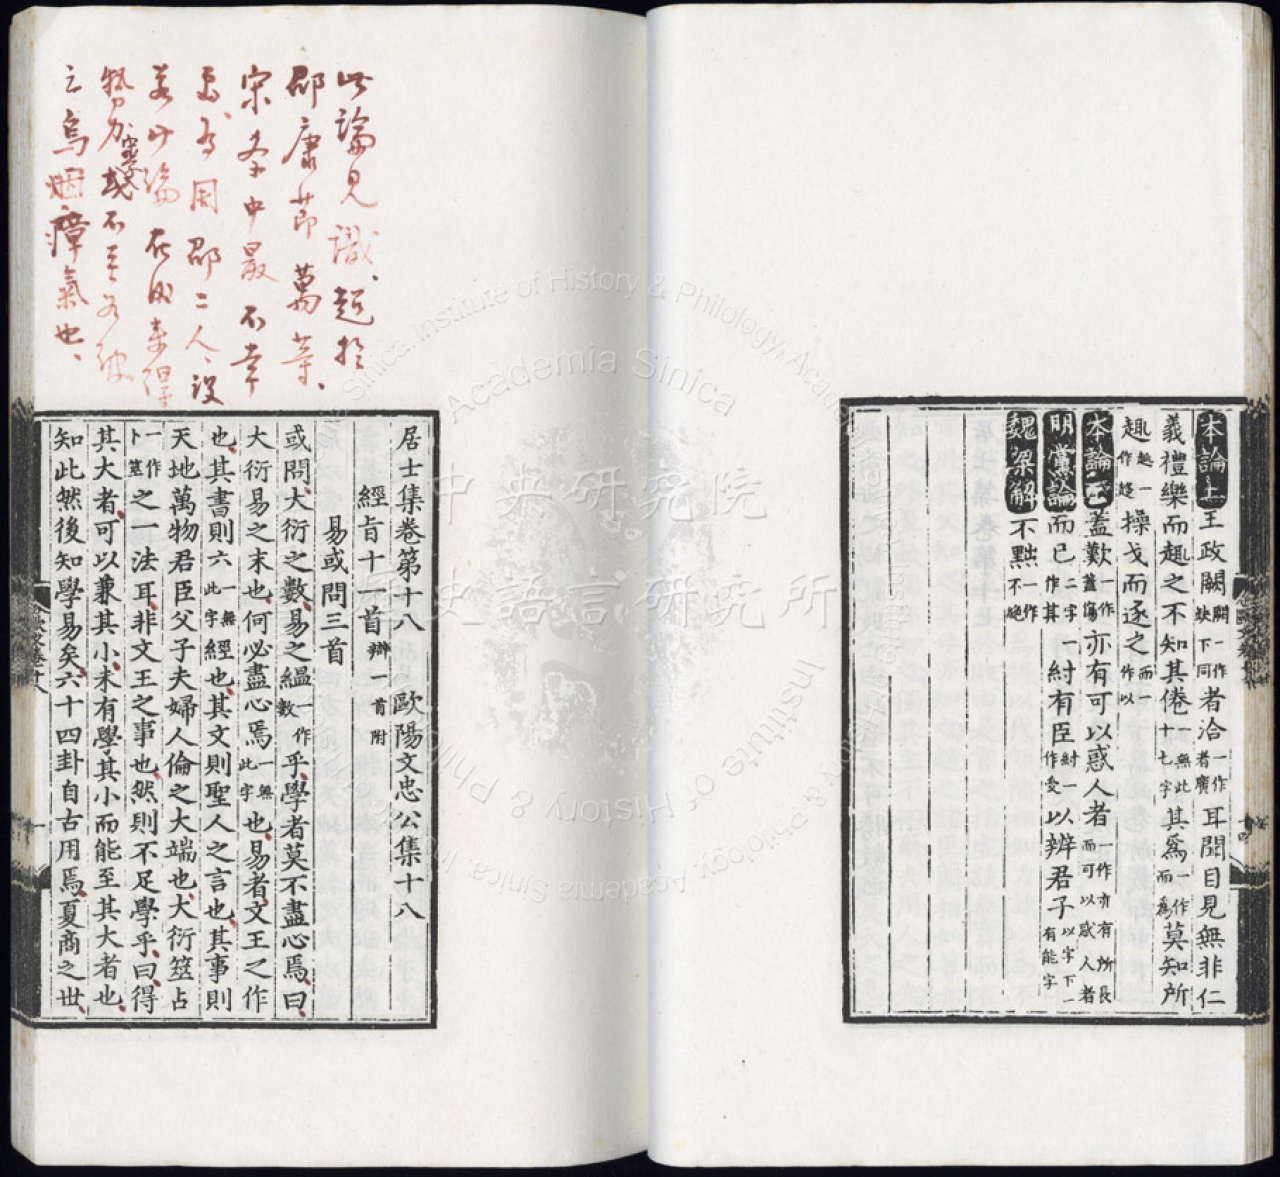 本論上王政闕一作缺下同者洽一作者廣耳聞目見無非仁
義禮樂而趣之不知其倦一無此十七字其爲一作而爲莫知所
趣一作趨操戈而逐之一作而以
本論下蓋歎一作蓋傷亦有可以惑人者一作亦有所長而可以惑人者
朋黨論而已二字作其紂有臣紂一作受以辨君子以字下一有能字
魏梁解不黜一作不絕
此論見識、超於
邵康節萬萬等、
宋李中最不幸
用邵二人、設
若此論在
勢力或不至
之烏烟瘴氣也、
居士集卷第十八 歐陽文忠公集十八
經旨十一首辯一首附
易或問三首
或問大衍之數易之縕一作數乎學者莫不盡心焉曰
大衍易之末也何必盡心焉一無此字也易者文王之作
也其書則六一無此字經也其文則聖人之言也其事則
天地萬物君臣父子夫婦人倫之大端也大衍筮占
一作卜筮之一法耳非文王之事也然則不足學乎曰得
其大者可以兼其小未有學其小而能至其大者也
知此然後知學易矣六十四卦自古用焉夏商之世
中央研究院
歷史語言研究所
Academia Sinica
Institute of History & Philology, Academia Sinica